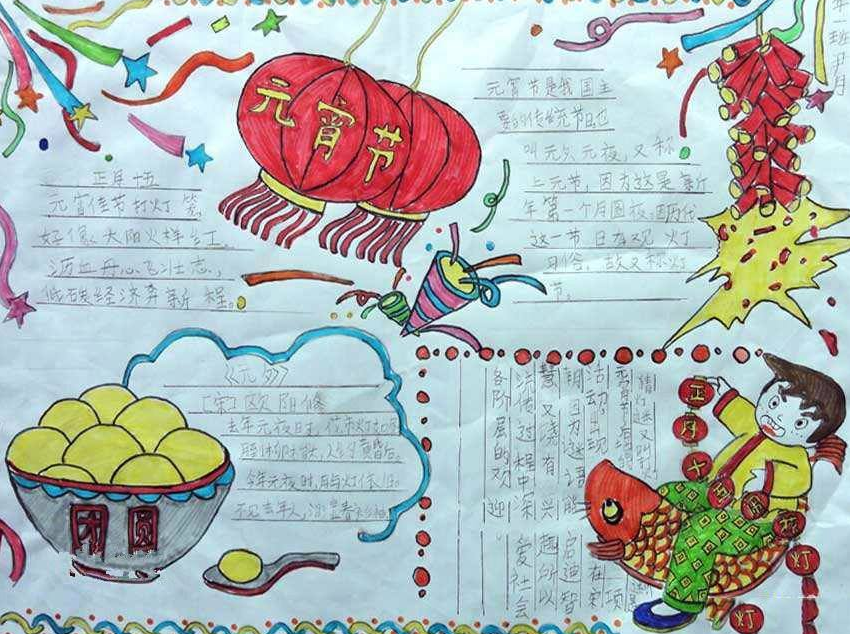 元宵节
正月十五
元宵佳节打灯笼
好像太阳火样红。
沥血丹心飞壮志,
低碳经济奔新程。
元宵节是我国主
要的传统节日,也
叫元夕、元夜,又称
上元节,因为这是新
年第一个月圆夜。因历代
这一节日有观灯
习俗,故又称灯
节。
《元夕》
[宋]欧阳修
去年元夜时,花市灯如昼
月上柳梢头,人约黄昏后。
今年元夜时,月与灯依旧。
不见去年人,泪湿春衫袖
团圆
猜灯谜又叫打
元宵节
活动,出现在
朝。因为谜语能启迪智
慧又饶有兴趣,所以
流传过程中深受社会
各阶层的欢迎。
正月十五
灯
灯
年一班尹月